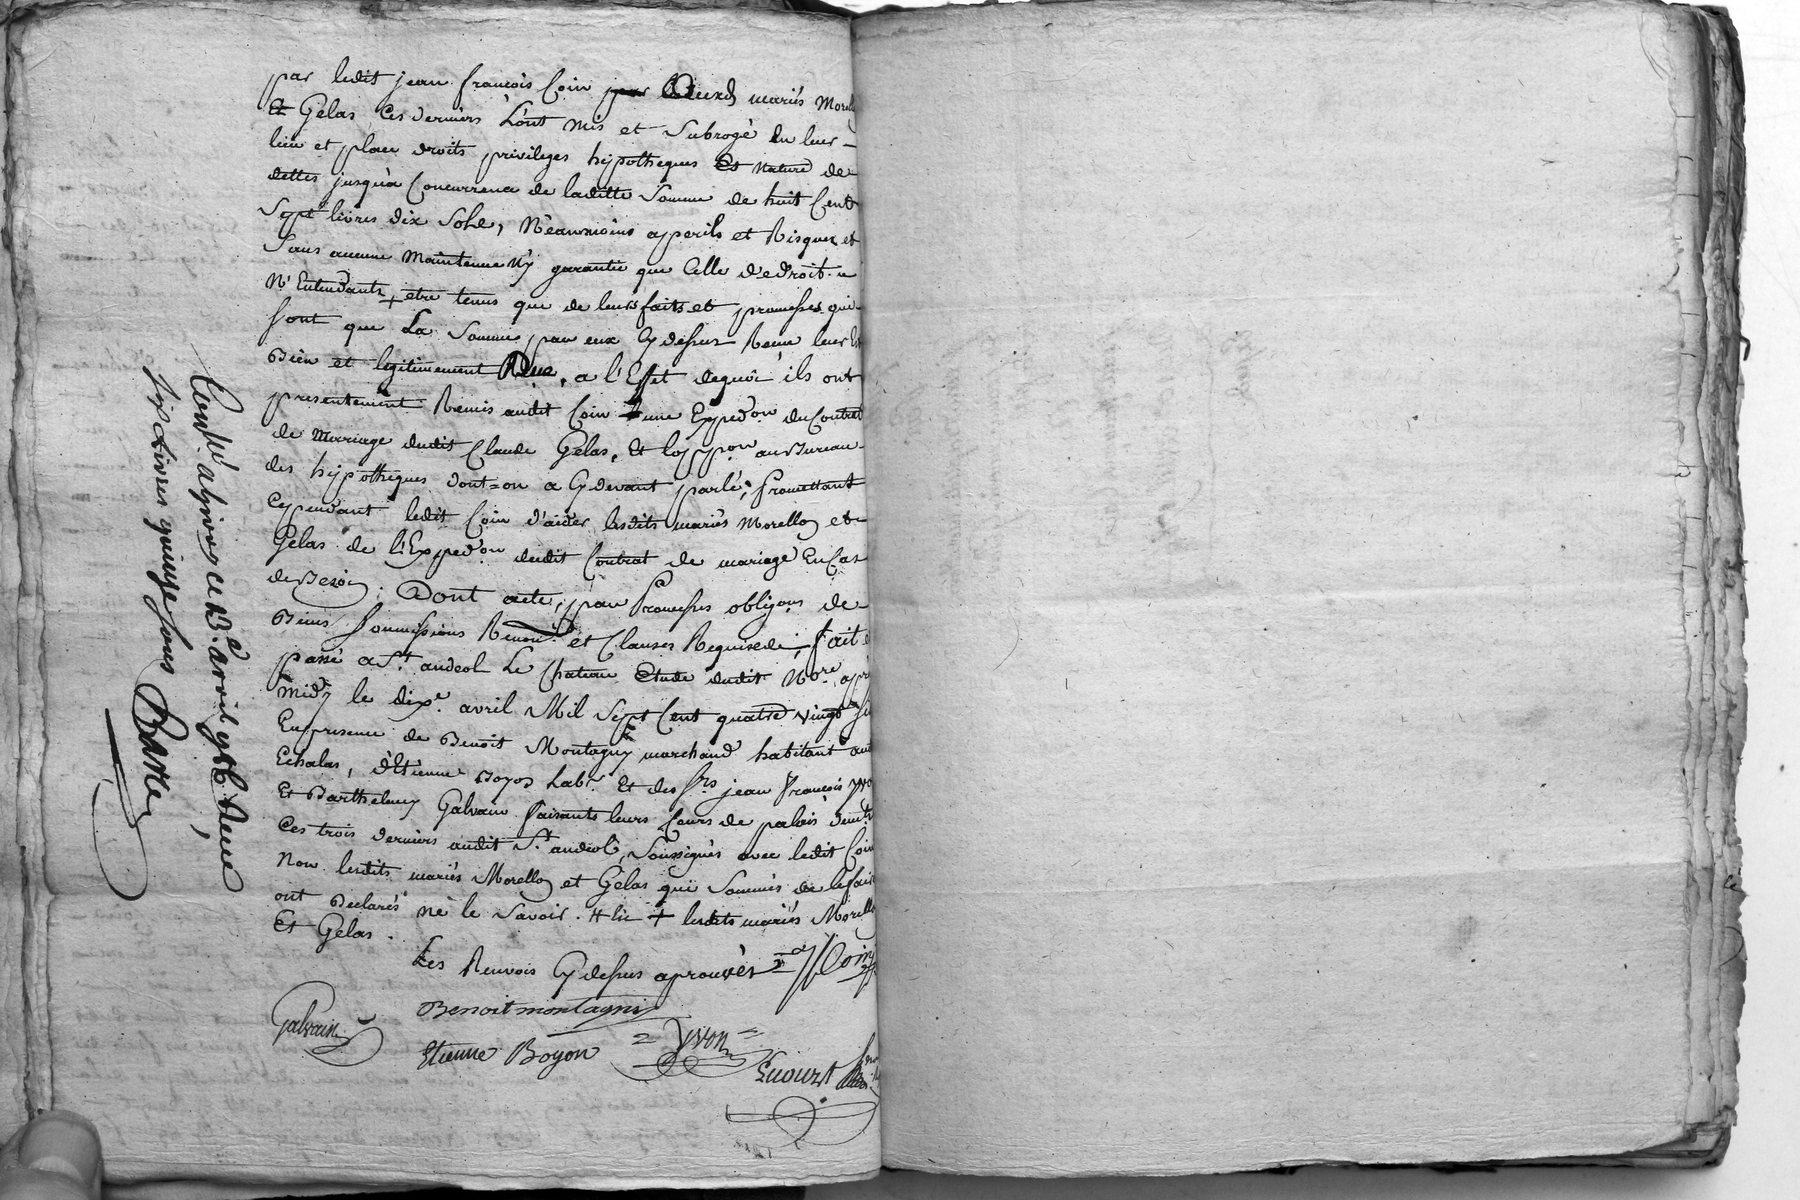 par ledit jean françois Coin auxds mariés Morellon
et Gelas, Ces derniers L'ont mis et subrogé En leur
lieu et place droits privileges hypotheques Et nature de
dettes jusqu'à Concurrence de laditte Somme de huit Cent
Sept livres dix sols, Néanmoins a perils et Risques et
Sans aucune Maintenue N'y garantie que Celle de droit
N'Entendants + etre tenus que de leurs faits et promesses qui
Sont que La Somme par eux Cy dessus Reçue leur Est
Bien et legitimement Due, a l'Effet dequoi ils ont
presentement Remis audit Coin une Exped.on du Contrat
de Mariage dudit Claude Gelas, Et l'opp.on au Bureau
des hypotheques dont=on a Cy devant parlé, promettant
Cependant ledit Coin d'aider lesdits mariés Morellon et
Gelas de l'Exped.on dudit Contrat de mariage En Cas
de Besoin; Dont acte, par Promesses obligons de
Biens Soumissions Renon.s et Clauses Requises; fait et
passé a St. andeol Le Chateau Etude dudit No.re après
Midy le dix.e avril Mil Sept Cent quatre vingt Six
En presence de Benoit Montagny marchand habitant aud.
Echalas, d'Etienne Boyon Lab.r Et des S.rs jean François Yvon
Et Barthelemy Galvain faisants leurs Cours de palais dem.ts
Ces trois derniers audit St. andeol, Soussignés avec ledit Coin
Non lesdits mariés Morellon et Gelas qui Sommés de le faire
ont Declarés ne le Savoir. + lesdits mariés Morellon
Et Gelas.
Les Renvois Cy dessus aprouvés Coin
Benoit montagny
Galvain
Etienne Boyon Yvon
Enouzt
Con.lé a givors ce 13.e avril 1786 Reçu
Six Livres quinze Sous